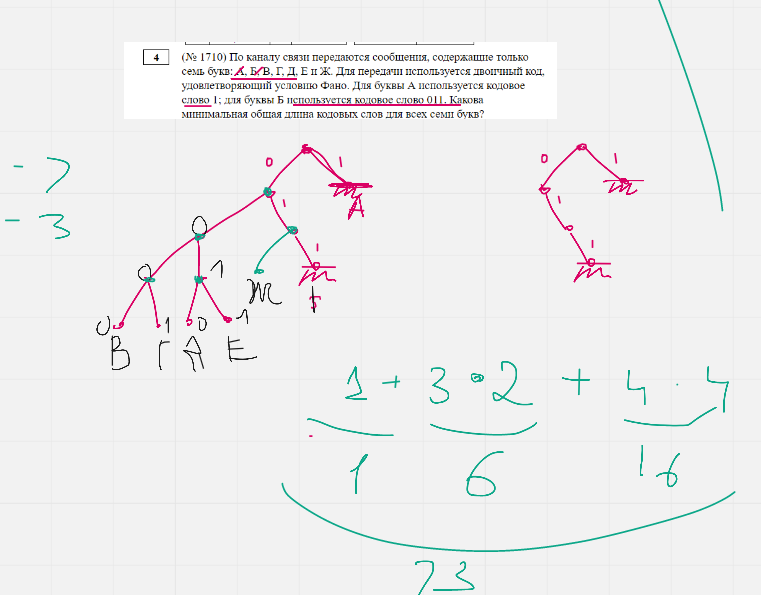 4 (№ 1710) По каналу связи передаются сообщения, содержащие только
семь букв: А, Б, В, Г, Д, Е и Ж. Для передачи используется двоичный код,
удовлетворяющий условию Фано. Для буквы А используется кодовое
слово 1; для буквы Б используется кодовое слово 011. Какова
минимальная общая длина кодовых слов для всех семи букв?
- 7
- 3
0 1 0 1
0 1 А 1
0 1 1 1
Ж Б
0 1 0 1
В Г Д Е
1 + 3 · 2 + 4 · 4
1 6 16
23